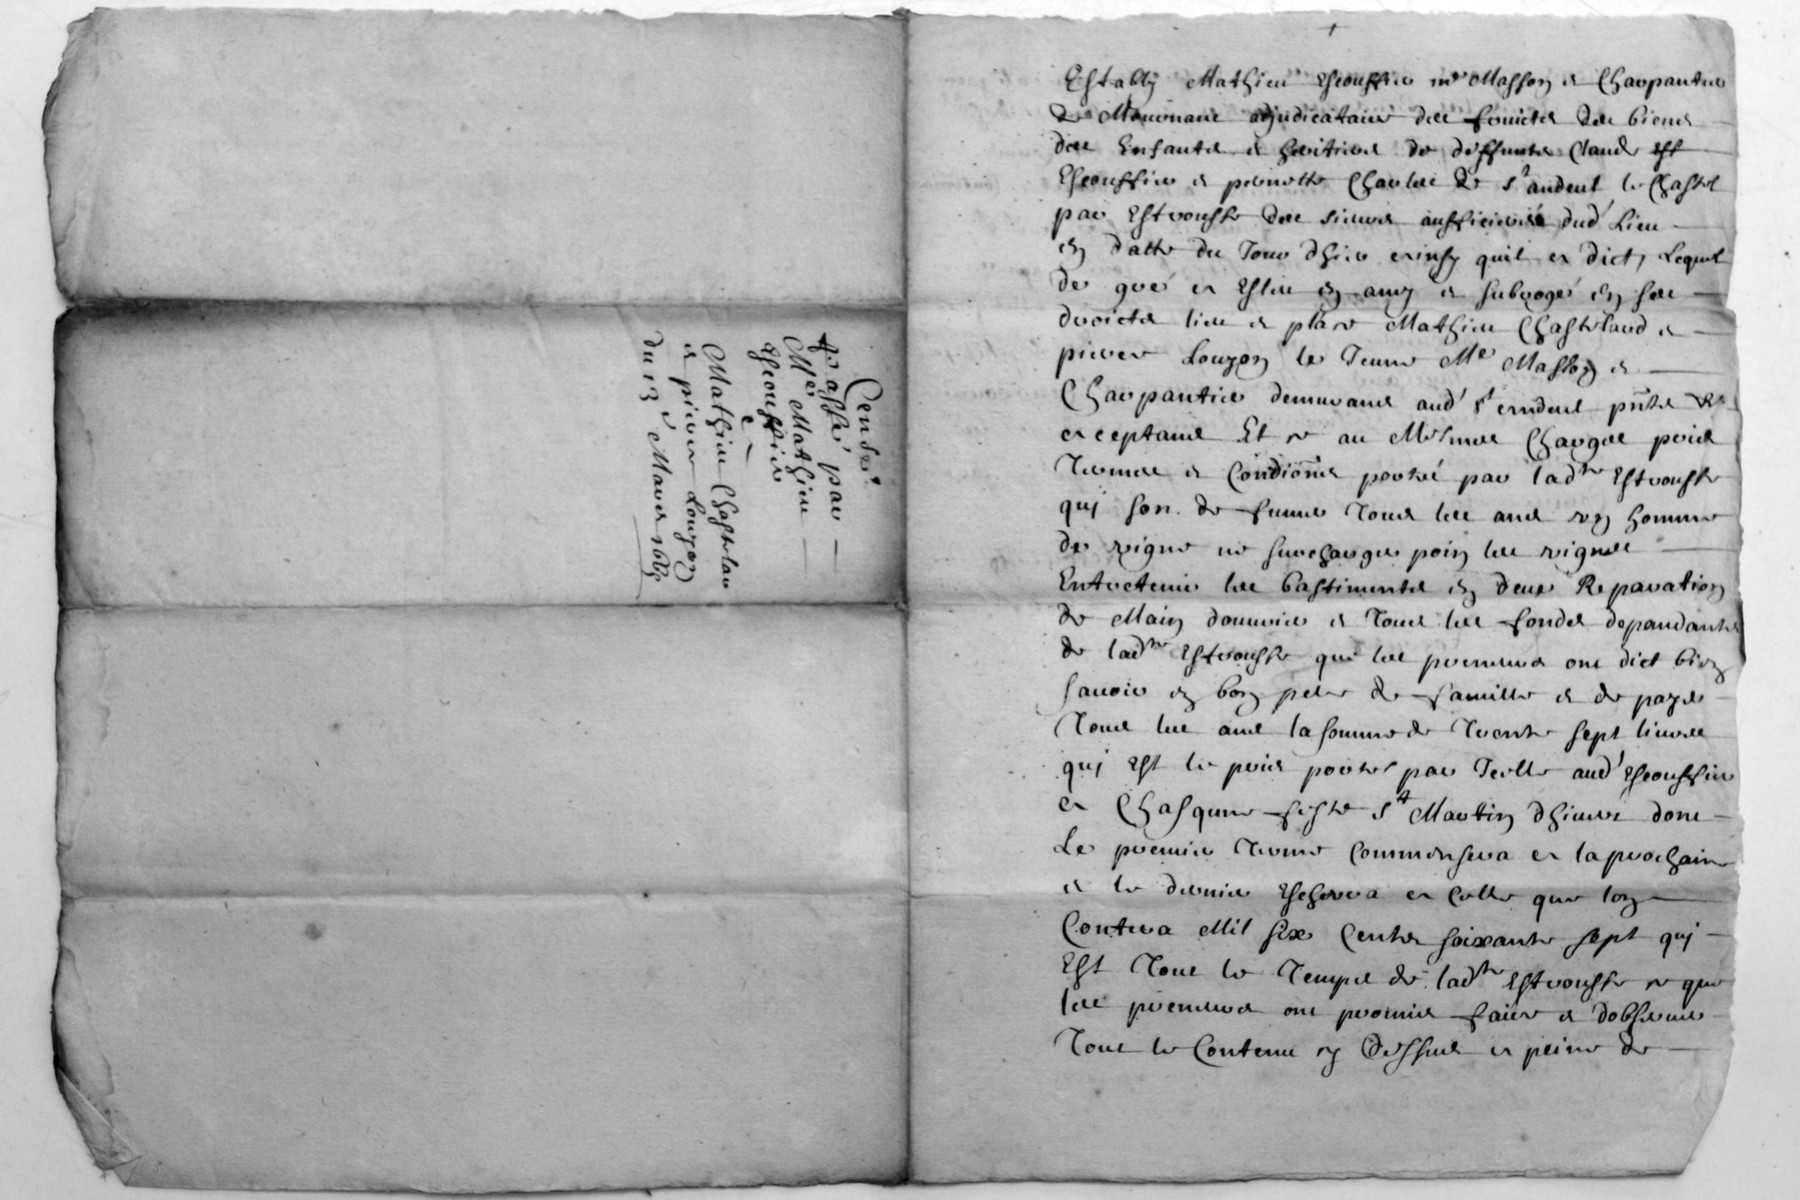 Cendes
passé par
Me Mathieu
Escouffier
a
Mathieu Chastelau
& pierre Louzon
du 13 Mars 1665
Estably Mathieu Escouffier me Masson & Charpantier
de adjudicataire des fruicts des biens
des Enfants & heritiers de deffuncts Claude
Escouffier & pernette Charles de St andeul le Chastel
par Estrousse des sieurs aufficiers dud Lieu
en datte du Jour dhier ainsy quil a dict, Lequel
de gré a Esleu en amy & subrogé en ses
droicts lieu & place Mathieu Chasteland &
pierre Louzon le Jeune Me Masson &
Charpantier demurans aud St endeul pnts &
acceptans Et ce au Mesmes Charges pris
Termes & Condions porté par ladte Estrousse
qui son de fumer Tous les ans ung homme
de vigne ne surcharger poin les vignes
Entretenir les bastiments en deue Reparation
de Main domuvre & Tous les fonds dependants
de ladte Estrousse que les preneurs ont dict bien
savoir en bon pere de famille & de payer
Tous les ans la somme de Trente sept livres
qui Est le pris portes par Icelle aud Escouffier
a Chasqune feste St Martin dhiver dont
Le premier Terme Commensera a la prochaine
& le dernier Eschera a Celle que lon
Contera Mil six Cents soixante sept qui
Est Tout le Temps de ladte Estrousse ce que
les preneurs ont promis faire & dobserver
Tout le Contenu cy Dessus a peine de